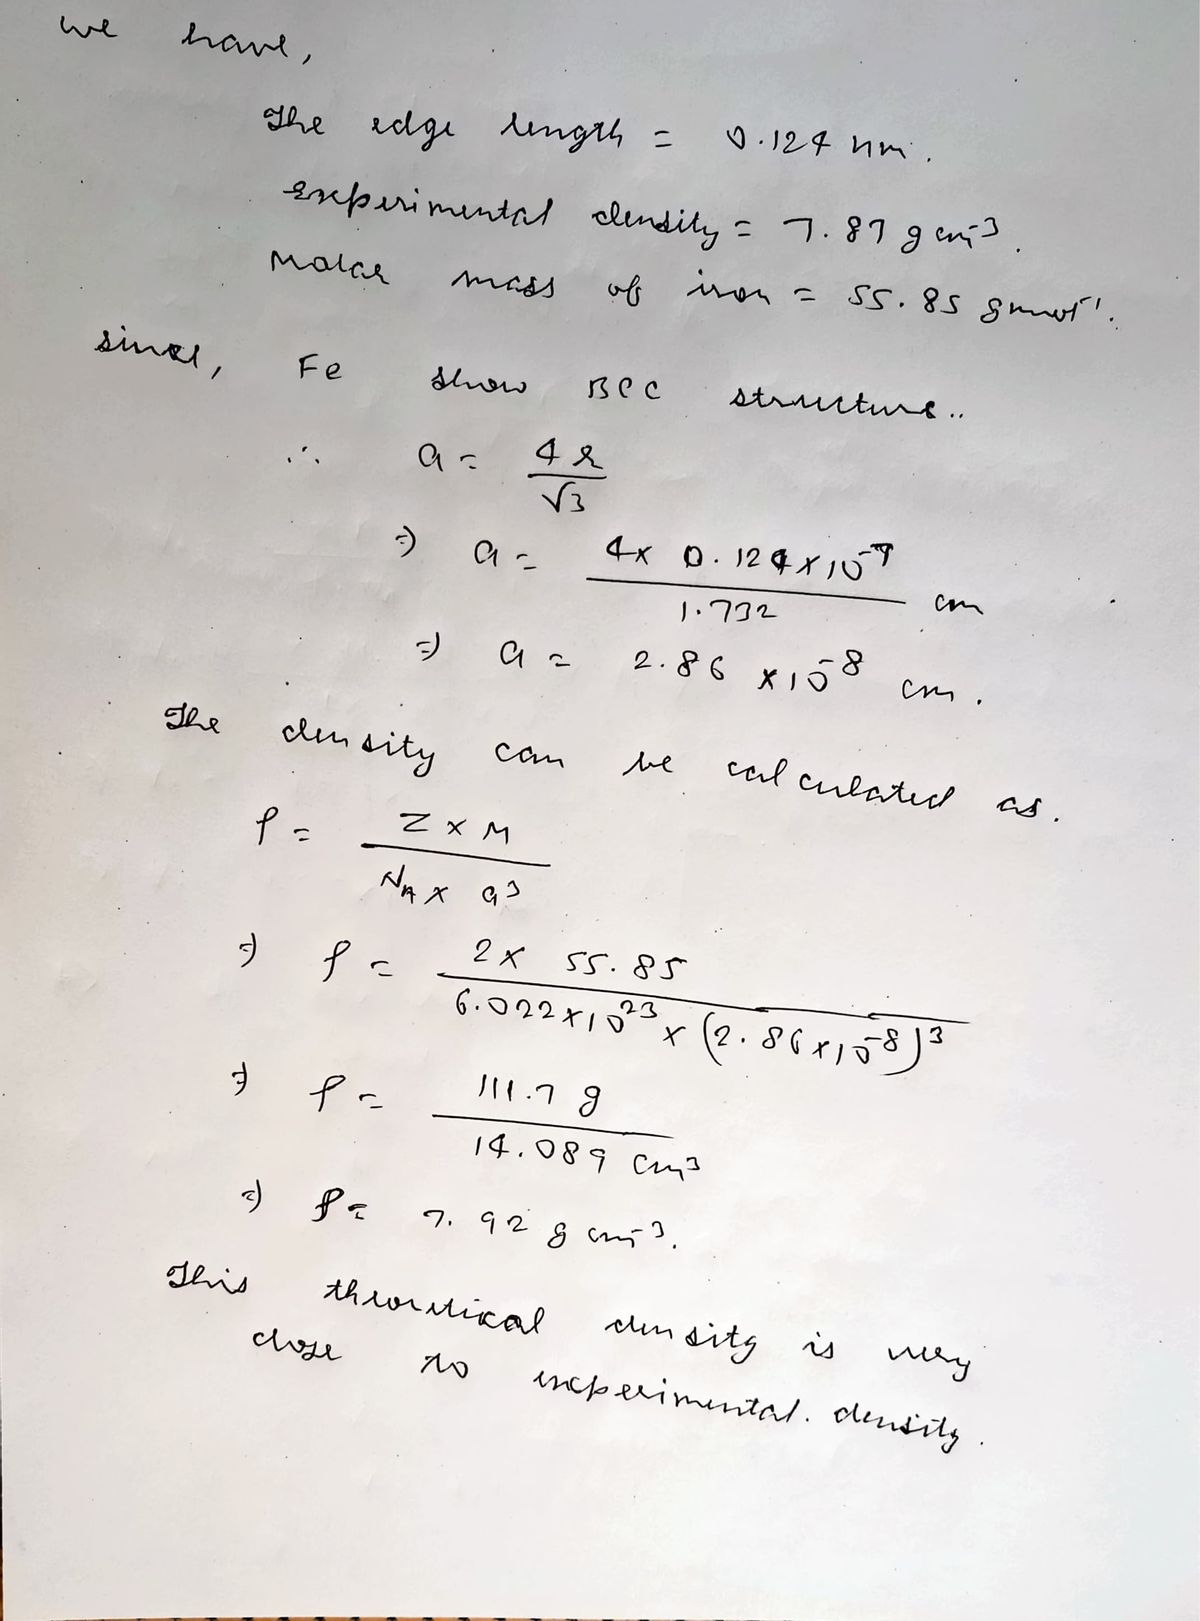 we have,
The edge length = 0.124 nm.
Experimental density = 7.87 g cm⁻³.
Molar mass of iron = 55.85 g mol⁻¹.
since, Fe show BCC structure..
∴ a = 4r / √3
⇒ a = 4 × 0.124 × 10⁻⁷ / 1.732 cm
⇒ a = 2.86 × 10⁻⁸ cm.
The density can be calculated as.
ρ = Z × M / N_A × a³
⇒ ρ = 2 × 55.85 / 6.022 × 10²³ × (2.86 × 10⁻⁸)³
⇒ ρ = 111.7 g / 14.089 cm³
⇒ ρ = 7.92 g cm⁻³.
This theoretical density is very
close to experimental. density.